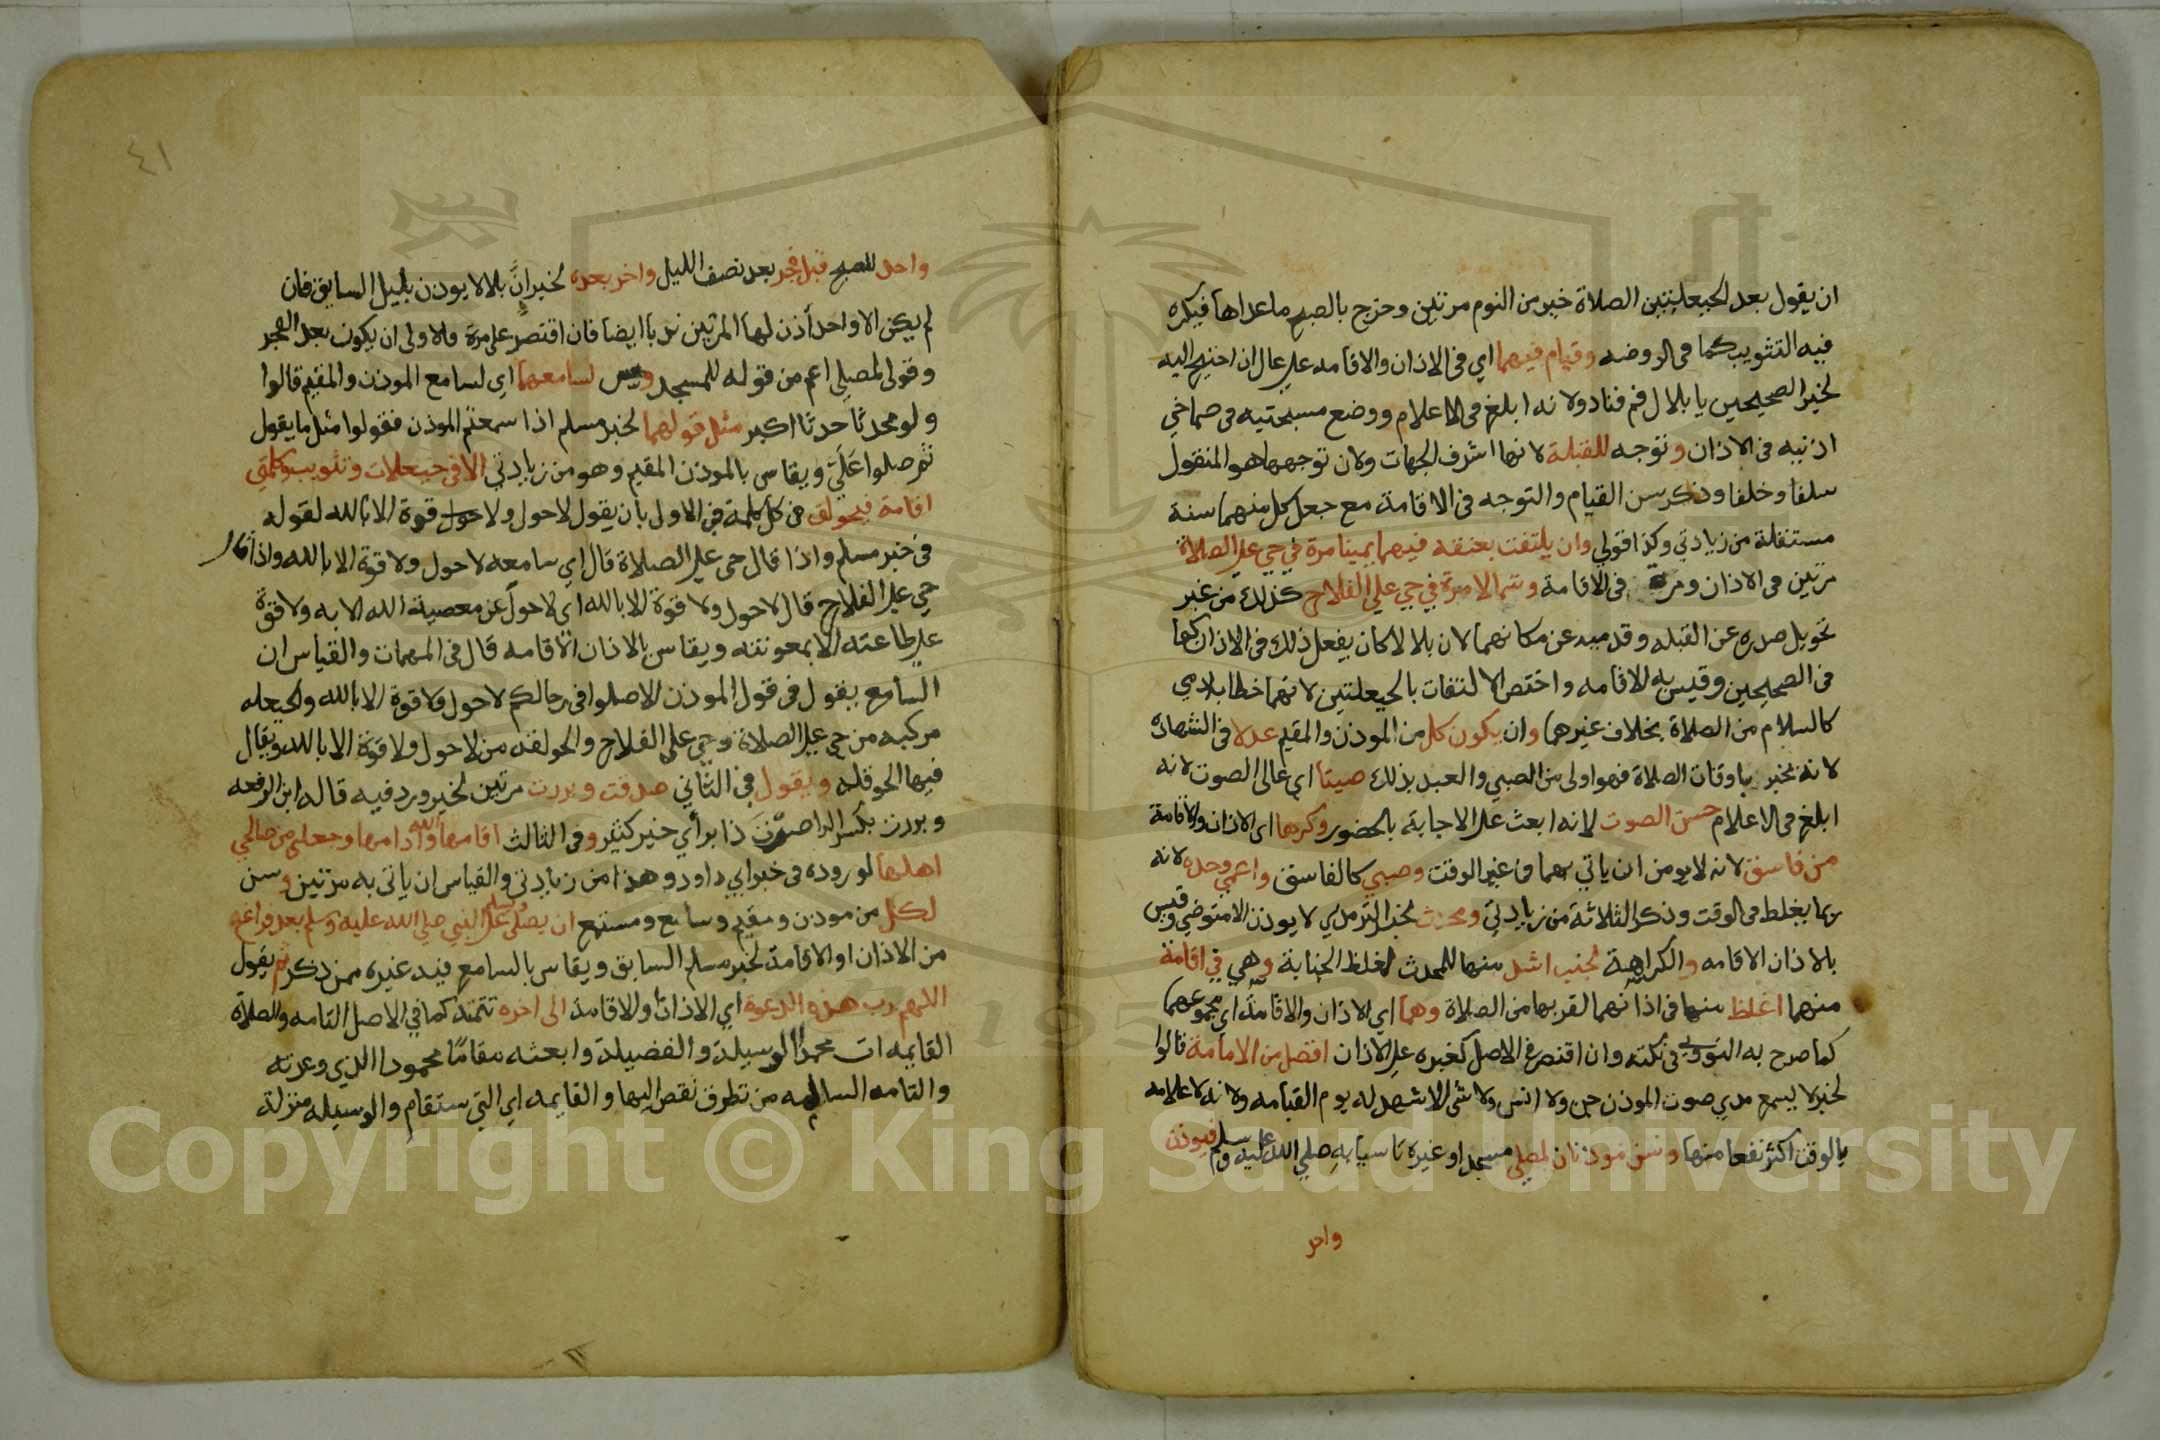 ان يقول بعد الحيعلتين الصلاة خير من النوم مرتين وخرج بالصبح ما عداها فيكره
فيه التثويب كما في الروضه وقيام فيهما اي في الاذان والاقامه علي عال ان احتيج اليه
لخبر الصحيحين يا بلال قم فناد ولانه ابلغ في الاعلام ووضع مسبحتيه في صماخي
اذنيه في الاذان وتوجه للقبلة لانها اشرف الجهات ولان توجهها هو المنقول
سلفا وخلفا وذكر سن القيام والتوجه في الاقامة مع جعل كل منهما سنة
مستقلة من زيادتي وكذا قولي وان يلتفت بعنقه فيهما يمينا مرة في حي علي الصلاة
مرتين في الاذان ومرة في الاقامة وشمالا مرة في حي علي الفلاح كذلك من غير
تحويل صدره عن القبله وقدميه عن مكانهما لان بلالا كان يفعل ذلك في الاذان كما
في الصحيحين وقيس به الاقامه واختص الالتفات بالحيعلتين لانهما خطاب ادمي
كالسلام من الصلاة بخلاف غيرهما وان يكون كل من الموذن والمقيم عدلا في الشهادة
لانه يخبر باوقات الصلاة فهو اولى من الصبي والعبد بذلك صيتا اي عالى الصوت لانه
ابلغ في الاعلام حسن الصوت لانه ابعث علي الاجابة بالحضور وكرها اي الاذان والاقامة
من فاسق لانه لا يومن ان ياتي بهما في غير الوقت وصبي كالفاسق واعمي وحده لانه
ربما يغلط في الوقت وذكر الثلاثة من زيادتي ومحدث لخبر الترمذي لا يوذن الا متوضي وقيس
بالاذان الاقامه والكراهة لجنب اشد منها للمحدث لغلظ الجنابة وهي في اقامة
منهما اغلظ منها في اذانهما لقربها من الصلاة وهما اي الاذان والاقامة اي مجموعهما
كما صرح به النووي في نكته وان اقتصر في الاصل كغيره علي الاذان افضل من الامامة قالوا
لخبر لا يسمع مدي صوت الموذن جن ولا انس ولا شي الا شهد له يوم القيامه ولانه لاعلامه
بالوقت اكثر نفعا منها وسن موذنان لمصلي مسجد او غيره تاسيا به صلي الله عليه وسلم فيوذن
واحد
٤١
واحد للصبح قبل فجر بعد نصف الليل واخر بعده لخبر انَّ بلالا يوذن بليل السابق فان
لم يكن الا واحد أذن لها المرتين ندبا ايضا فان اقتصر على مرة فالاولى ان يكون بعد الفجر
وقولي لمصلي اعم من قوله للمسجد وسن لسامعهما اي لسامع الموذن والمقيم قالوا
ولو محدثا حدثا اكبر مثل قولهما لخبر مسلم اذا سمعتم الموذن فقولوا مثل ما يقول
ثم صلوا عَلَيَّ ويقاس بالموذن المقيم وهو من زيادتي الا في حيعلات وتثويب وكلمتي
اقامة فيحولق في كل كلمة في الاول بان يقول لاحول ولا حول قوة الا بالله لقوله
في خبر مسلم واذا قال حي علي الصلاة قال اي سامعه لاحول ولا قوة الا بالله واذا قال
حي علي الفلاح قال لاحول ولا قوة الا بالله اي لاحول عن معصية الله الا به ولا قوة
علي طاعته الا بمعونته ويقاس بالاذان الاقامه قال في المهمات والقياس ان
السامع يقول في قول الموذن الا صلوا في رحالكم لاحول ولا قوة الا بالله والحيعله
مركبه من حي علي الصلاة وحي علي الفلاح والحولقه من لاحول ولا قوة الا بالله ويقال
فيها الحوقله ويقول في الثاني صدقت وبررت مرتين لخبر ورد فيه قاله ابن الرفعه
وبررت بكسر الرا صرت ذا بر أي خير كثير وفي الثالث اقامها الله وادامها وجعلني من صالحي
اهلها لوروده في خبر ابي داود وهذا من زيادتي والقياس ان ياتي به مرتين وسن
لكل من موذن ومقيم وسامع ومستمع ان يصلي ويسلم علي النبي صلي الله عليه وسلم بعد فراغه
من الاذان او الاقامة لخبر مسلم السابق ويقاس بالسامع فيه غيره ممن ذكر ثم يقول
اللهم رب هذه الدعوة اي الاذان والاقامة الى اخره تتمته كما في الاصل التامه والصلاة
القايمه ات محمدًا الوسيلة والفضيلة وابعثه مقامًا محمودا الذي وعدته
والتامه السالمه من تطرق نقص اليها والقايمه اي التي ستقام والوسيله منزلة
Copyright © King Saud University